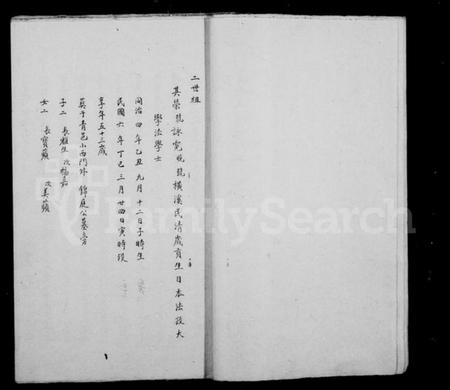 二世祖
其榮號詠霓晚號橫溪民清歲貢生日本法政大
學法學士
同治四年乙丑九月十二日子時生
民國六年丁巳三月廿四日寅時歿
享年五十三歲
葬于青邑小西門外錦庭公墓旁
子二 長維生 次楊嘉
女二 長寶蘋 次美蘋
FamilySearch